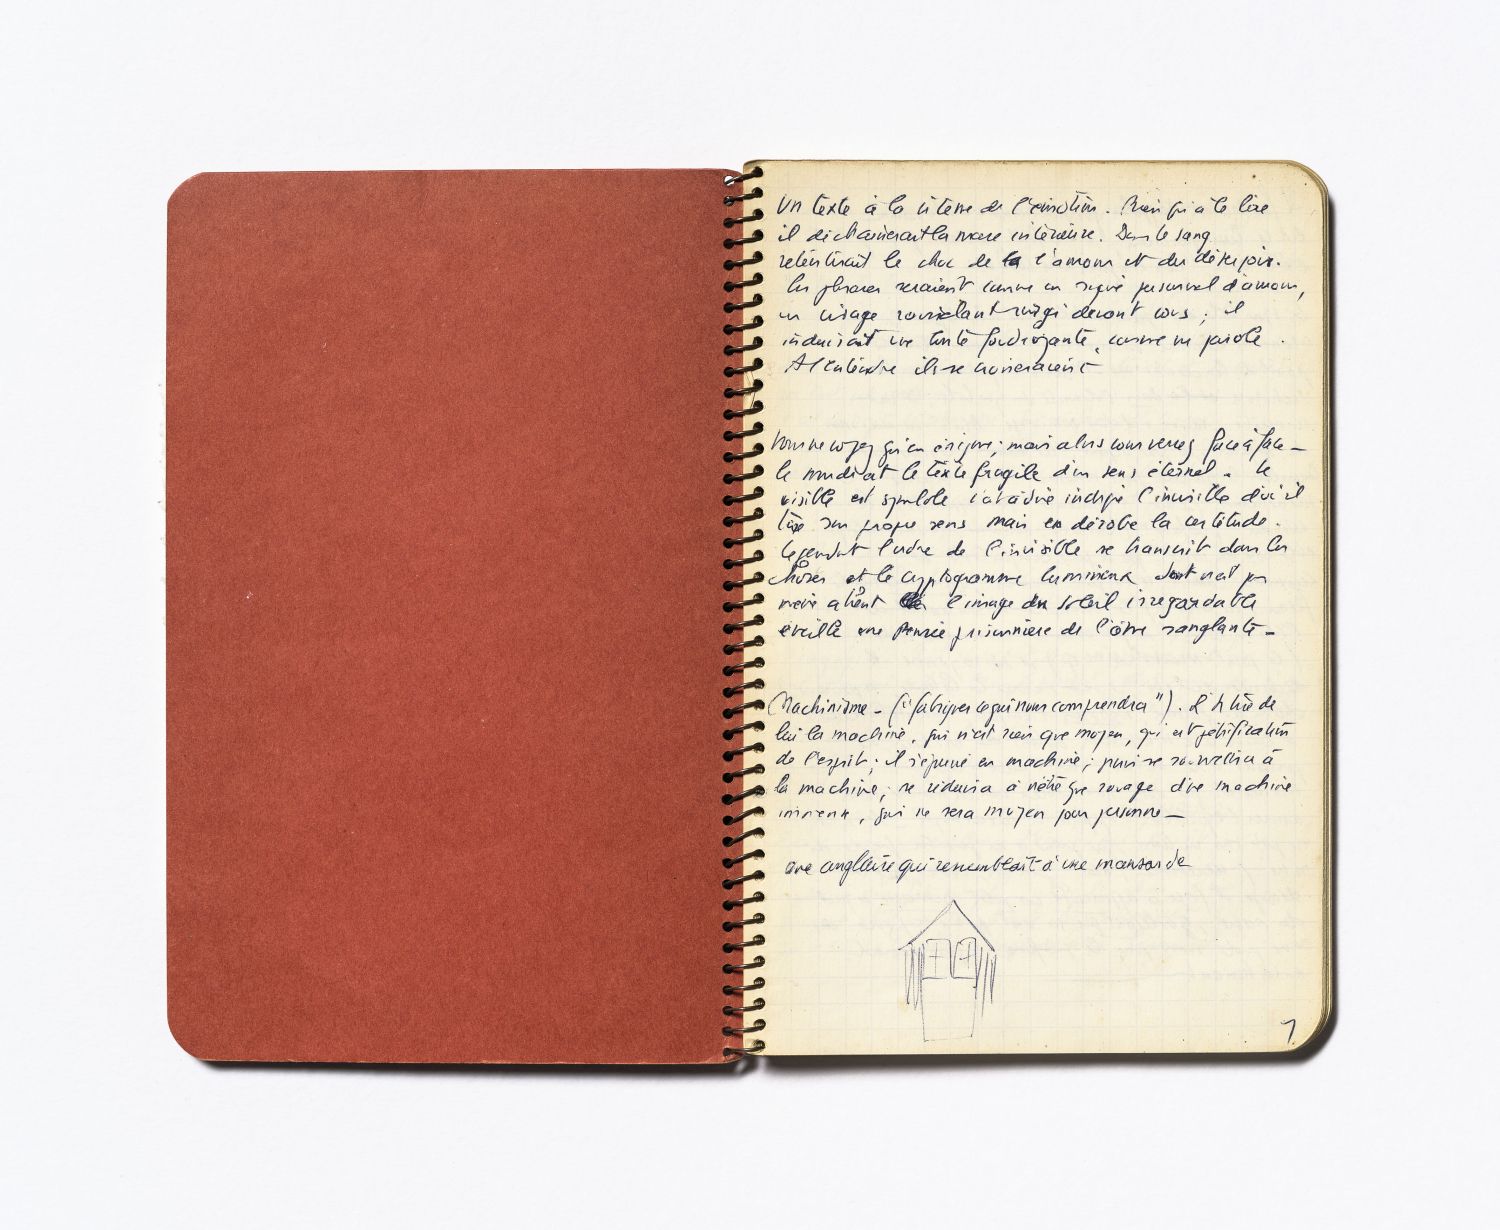 Un texte à la vitesse de l'émotion. Rien qu'à le lire
il déchaînerait la mare intérieure. Dans le sang
retentirait le choc de l'amour et du désespoir.
Les phrases seraient comme un signe personnel d'amour,
un visage ruisselant surgi devant vous ; il
induirait une foudroyante, comme une parole.
A l'entendre ils se
Vous ne voyez qu'en énigme; mais alors vous verrez face à face —
le monde est le texte fragile d'un sens éternel. Le
visible est symbole c'est à dire indique l'invisible d'où il
tire son propre sens mais en dérobe la certitude.
Cependant l'ordre de l'invisible se transcrit dans les
choses et le cryptogramme lumineux dont naît par
l'image du soleil irregardable
éveille une pensée prisonnière de l'être sanglante —
Machinisme — ("fabriquer ce qui nous comprendra"). Il tire de
lui la machine, qui n'est rien que moyen, qui est pétrification
de l'esprit; il s'épuise en machine; puis se soumettra à
la machine; se réduira à n'être que rouage d'une machine
immense, qui ne sera moyen pour personne —
une anglaise qui ressemblait à une mansarde
7